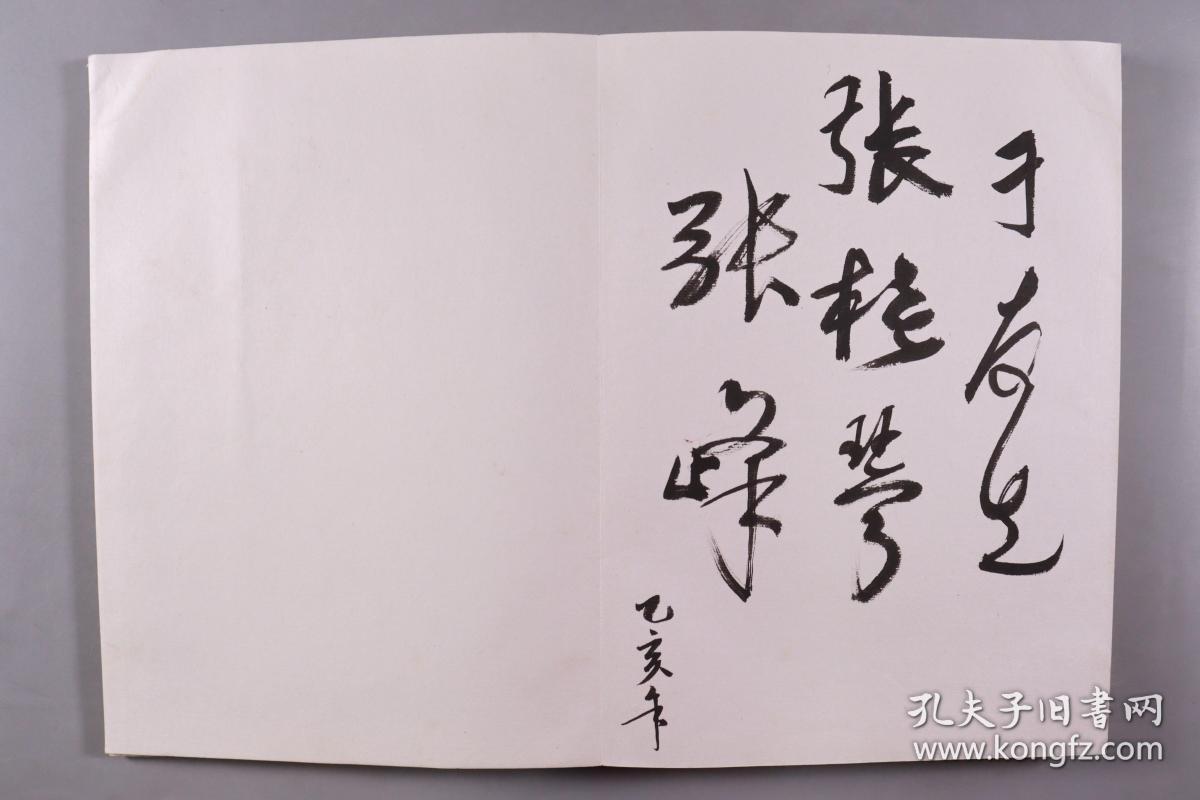 于友先
張桂琴
張峰
乙亥年
孔夫子旧書网
www.kongfz.com